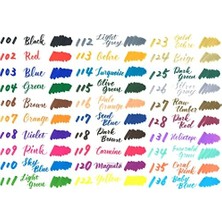 101 Black
102 Red
103 Blue
104 Green
106 Brown
107 Orange
108 Violet
109 Pink
110 Sky Blue
111 Light Green
112 Light Gray
113 Ochre
114 Turquoise
115 Olive Green
116 Pale Orange
117 Steel Blue
118 Dark Brown
119 Carmine
120 Magenta
122 Yellow
123 Gold Ochre
124 Beige
125 Dark Green
126 Gray
127 Raw Umber
128 Dark Red
131
134 Emerald Green
135 Coral Pink
136 Blue